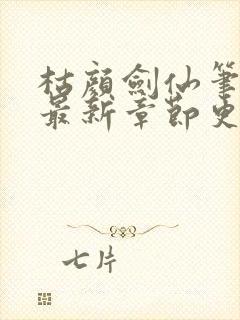 枯顏劍仙筆
最新章節更
七片